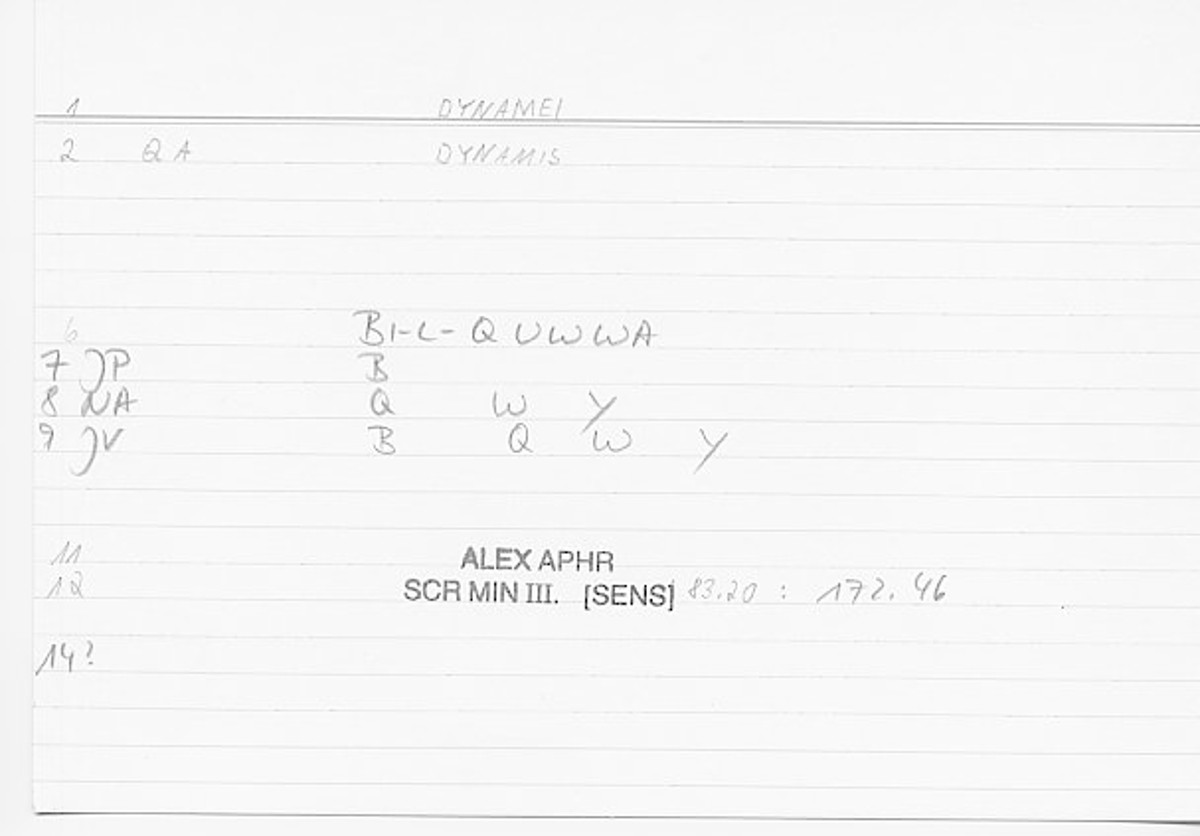 1 DYNAMEI
2 QA DYNAMIS
6 BI-L- Q UWWA
7 JP B
8 NA Q W Y
9 JV B Q W Y
11 ALEX APHR
12 SCR MIN III. [SENS] 83.20 : 172.46
14?